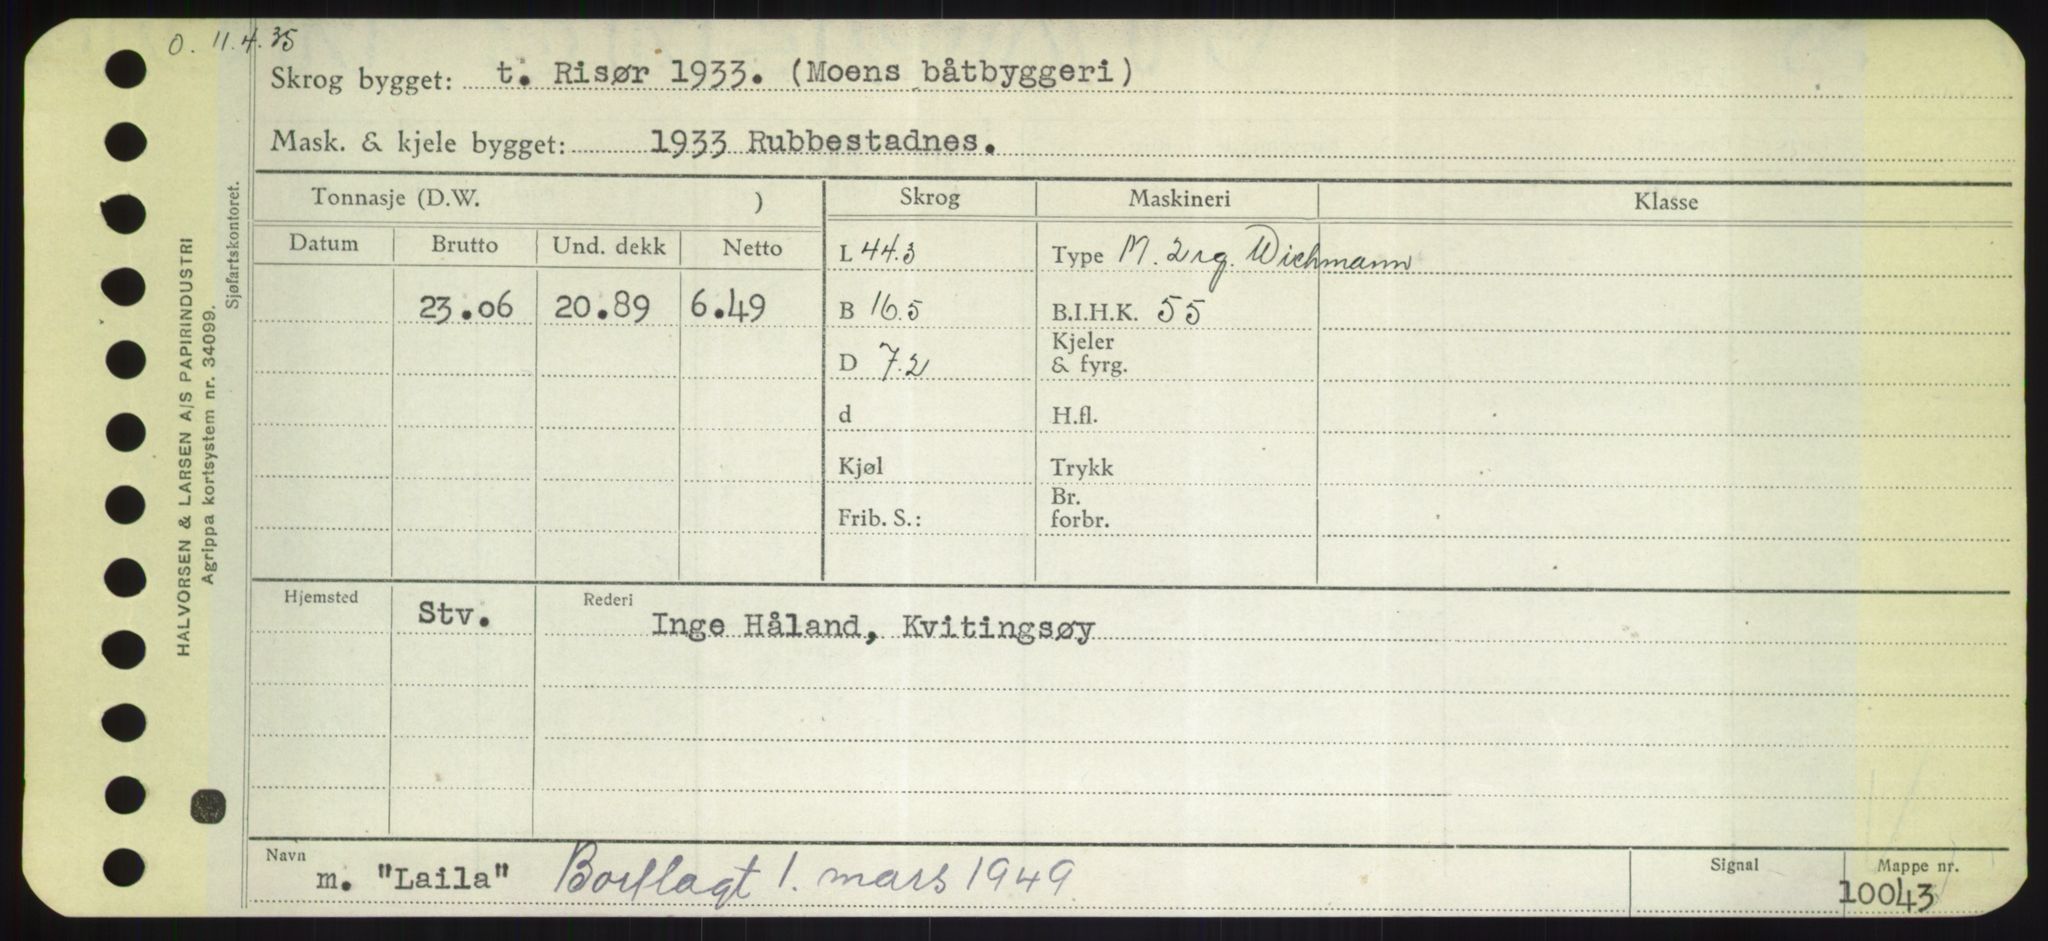 O. 11.4.35
Skrog bygget: t. Risør 1933. (Moens båtbyggeri)
Mask. & kjele bygget: 1933 Rubbestadnes.
Tonnasje (D.W. ) Skrog Maskineri Klasse
Datum Brutto Und. dekk Netto L 44.3 Type M. 2 sg. Wichmann
23.06 20.89 6.49 B 16.5 B.I.H.K. 55
D 7.2 Kjeler & fyrg.
d H.fl.
Kjøl Trykk
Frib. S.: Br. forbr.
Hjemsted Stv. Rederi Inge Håland, Kvitingsøy
Navn m. "Laila" Bortlagt 1. mars 1949 Signal Mappe nr. 10043
HALVORSEN & LARSEN A/S PAPIRINDUSTRI
Agrippa kortsystem nr. 34099.
Sjøfartskontoret.